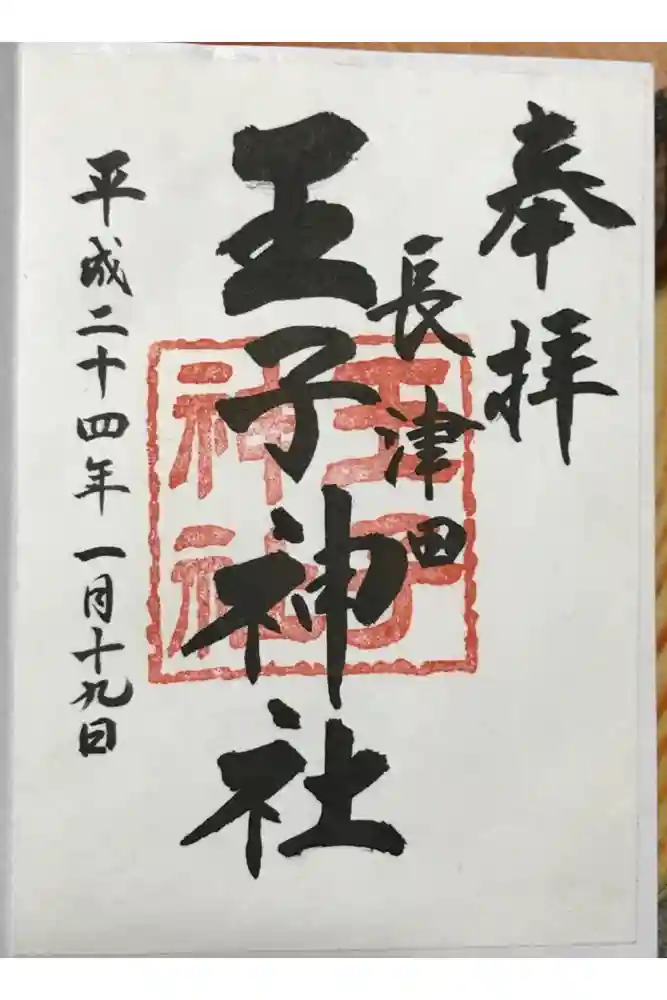 奉拝
長津田
王子神社
王子
神社
平成二十四年一月十九日